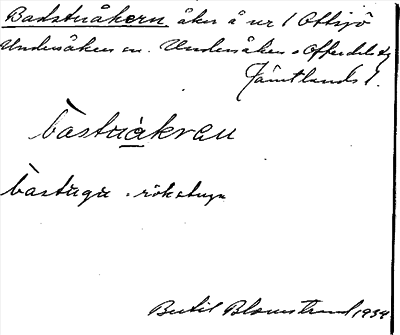 Badstuåkern åker å nr 1 Ottsjö
Undersåkers sn. Undersåkers o Offerdals tg
Jämtlands l.
bastuåkran
bastugu - rökstuga
Bertil Blomstrand 1934